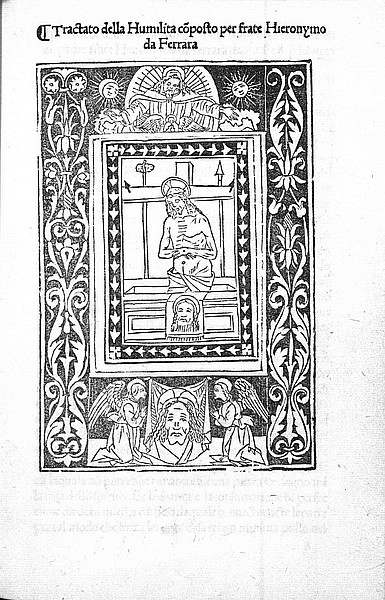 ¶ Tractato della Humilita cōposto per frate Hieronymo
da Ferrara